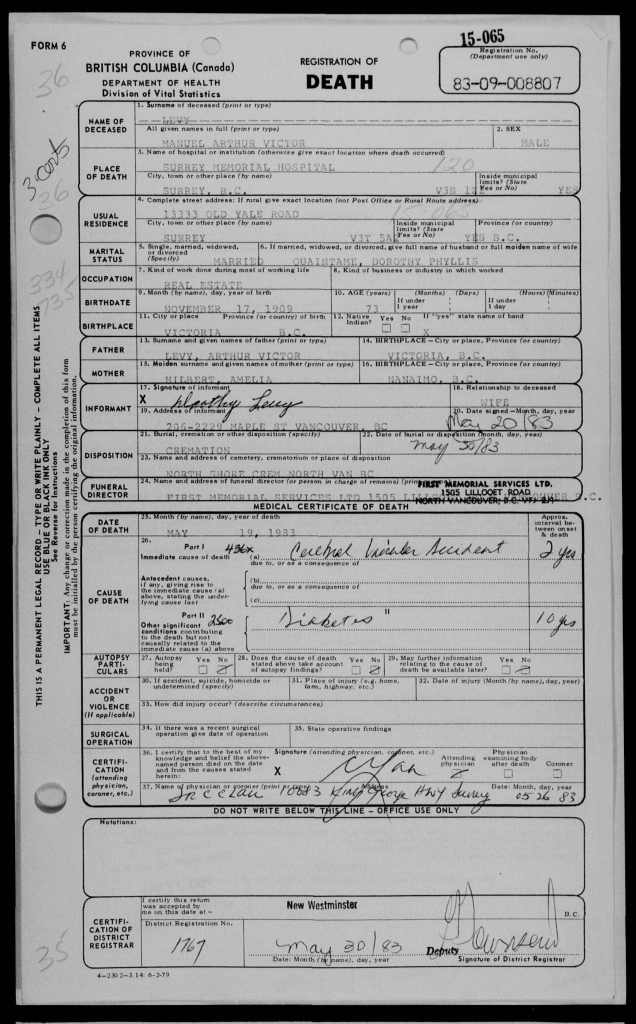 FORM 6
PROVINCE OF
BRITISH COLUMBIA (Canada)
DEPARTMENT OF HEALTH
Division of Vital Statistics
REGISTRATION OF
DEATH
15-065
Registration No.
(Department use only)
83-09-008807
36
3 certs
26
334
735
35
THIS IS A PERMANENT LEGAL RECORD – TYPE OR WRITE PLAINLY – COMPLETE ALL ITEMS
USE BLUE OR BLACK INK ONLY
See Reverse for Instructions
IMPORTANT: Any change or correction made in the completion of this form
must be initialled by the person certifying the original information.
NAME OF
DECEASED
1. Surname of deceased (print or type)
LEVY
All given names in full (print or type)
2. SEX
MANUEL ARTHUR VICTOR
MALE
PLACE
OF DEATH
3. Name of hospital or institution (otherwise give exact location where death occurred)
SURREY MEMORIAL HOSPITAL
120
City, town or other place (by name)
Inside municipal
limits? (State
Yes or No)
SURREY, B.C.
V3S
YES
USUAL
RESIDENCE
4. Complete street address: If rural give exact location (not Post Office or Rural Route address)
13333 OLD YALE ROAD
15-065
City, town or other place (by name)
Inside municipal
limits? (State
Yes or No)
Province (or country)
SURREY
V3T
YES B.C.
MARITAL
STATUS
5. Single, married, widowed,
or divorced
(Specify)
6. If married, widowed, or divorced, give full name of husband or full maiden name of wife
MARRIED
QUAISTAME, DOROTHY PHYLLIS
OCCUPATION
7. Kind of work done during most of working life
8. Kind of business or industry in which worked
REAL ESTATE
BIRTHDATE
9. Month (by name), day, year of birth
10. AGE (years)
If under
1 year
(Months)
(Days)
If under
1 day
(Hours)
(Minutes)
NOVEMBER 17, 1909
73
BIRTHPLACE
11. City or place
Province (or country) of birth
12. Native
Indian?
Yes No
If "yes" state name of band
VICTORIA B.C.
X
FATHER
13. Surname and given names of father (print or type)
14. BIRTHPLACE – City or place, Province (or country)
LEVY, ARTHUR VICTOR
VICTORIA, B.C.
MOTHER
15. Maiden surname and given names of mother (print or type)
16. BIRTHPLACE – City or place, Province (or country)
HILBERT, AMELIA
NANAIMO, B.C.
INFORMANT
17. Signature of informant
18. Relationship to deceased
X Dorothy Levy
WIFE
19. Address of informant
20. Date signed–Month, day, year
206-2229 MAPLE ST VANCOUVER, BC
May 20/83
DISPOSITION
21. Burial, cremation or other disposition (specify)
22. Date of burial or disposition (month, day, year)
CREMATION
May 30/83
23. Name and address of cemetery, crematorium or place of disposition
NORTH SHORE CREM NORTH VAN BC
FUNERAL
DIRECTOR
24. Name and address of funeral director (or person in charge of remains) (print or type)
FIRST MEMORIAL SERVICES LTD 1505
FIRST MEMORIAL SERVICES LTD.
1505 LILLOOET ROAD
NORTH VANCOUVER, B.C.
MEDICAL CERTIFICATE OF DEATH
DATE
OF DEATH
25. Month (by name), day, year of death
MAY 19, 1983
Approx.
interval be-
tween onset
& death
CAUSE
OF DEATH
26.
Part I
436x
Immediate cause of death
(a) Cerebral Vascular Accident
2 yrs
due to, or as a consequence of
Antecedent causes,
if any, giving rise to
the immediate cause (a)
above, stating the under-
lying cause last
(b)
due to, or as a consequence of
(c)
Part II 2500
II
Other significant
conditions contributing
to the death but not
causally related to the
immediate cause (a) above
Diabetes
10 yrs
AUTOPSY
PARTI-
CULARS
27. Autopsy
being
held?
Yes No
28. Does the cause of death
stated above take account
of autopsy findings?
Yes No
29. May further information
relating to the cause of
death be available later?
Yes No
ACCIDENT
OR
VIOLENCE
(If applicable)
30. If accident, suicide, homicide or
undetermined (specify)
31. Place of injury (e.g. home,
farm, highway, etc.)
32. Date of injury (Month (by name), day, year)
33. How did injury occur? (describe circumstances)
SURGICAL
OPERATION
34. If there was a recent surgical
operation give date of operation
35. State operative findings
CERTIFI-
CATION
(attending
physician,
coroner, etc.)
36. I certify that to the best of my
knowledge and belief the above-
named person died on the date
and from the causes stated
herein:
Signature (attending physician, coroner, etc.)
X
Attending
physician
Physician
examining body
after death
Coroner
37. Name of physician or coroner (print or type)
Address
Date: Month, day, year
King George Hwy Surrey
05 26 83
DO NOT WRITE BELOW THIS LINE – OFFICE USE ONLY
Notations:
CERTIFI-
CATION OF
DISTRICT
REGISTRAR
I certify this return
was accepted by
me on this date at –
New Westminster
B.C.
District Registration No.
1767
May 30/83
Date: Month (by name), day, year
Deputy
Townsend
Signature of District Registrar